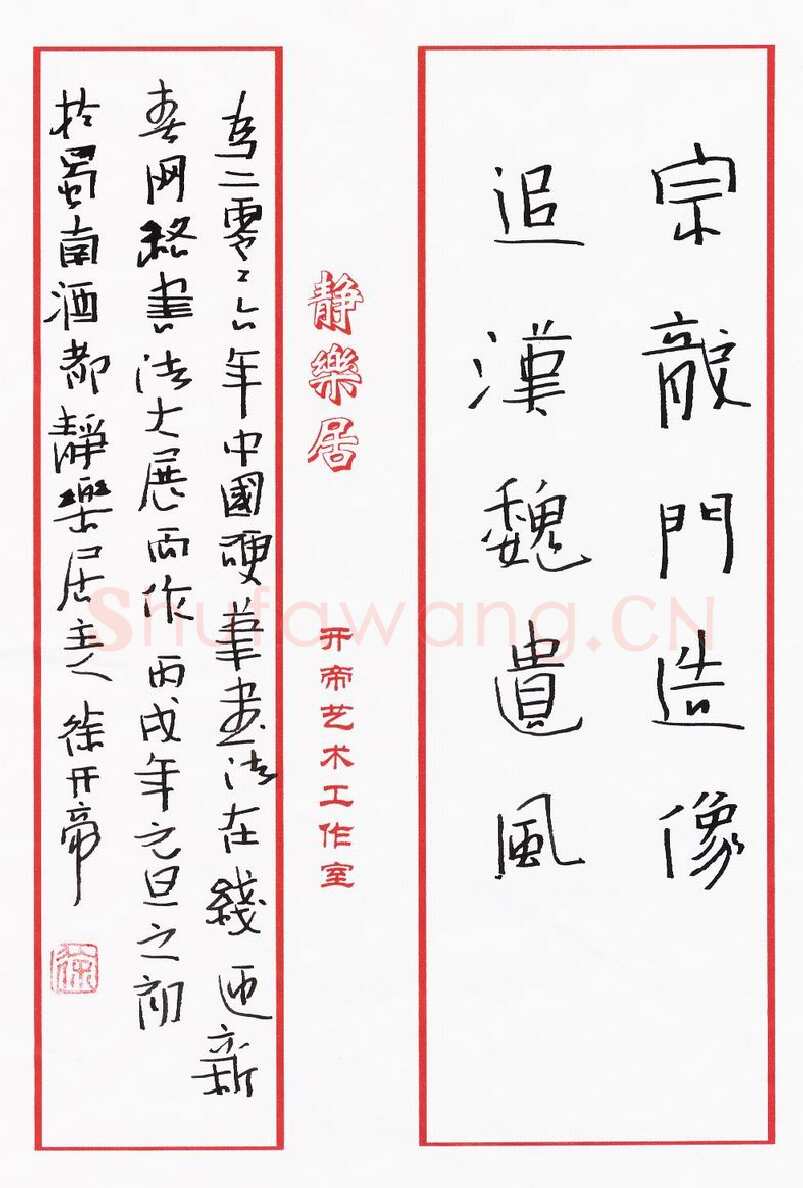 宗龍門造像
追漢魏遺風
静樂居
开帝艺术工作室
為二零零六年中國硬筆書法在綫迎新
春网絡書法大展而作 丙戌年元旦之初
於蜀南酒都靜樂居主人 徐开帝
徐
Shufawang.CN